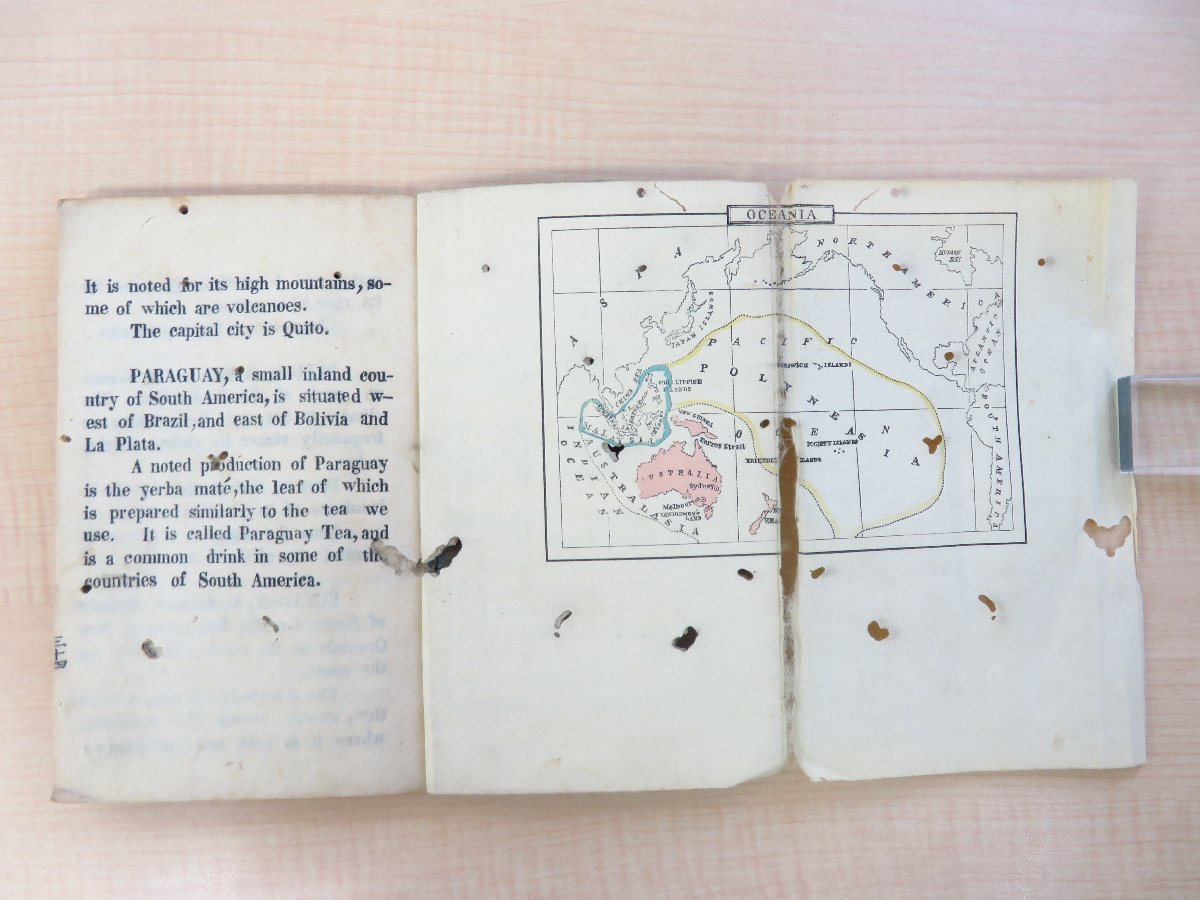 It is noted for its high mountains, so-
me of which are volcanoes.
The capital city is Quito.
PARAGUAY, a small inland cou-
ntry of South America, is situated w-
est of Brazil, and east of Bolivia and
La Plata.
A noted production of Paraguay
is the yerba maté, the leaf of which
is prepared similarly to the tea we
use. It is called Paraguay Tea, and
is a common drink in some of the
countries of South America.
三十四
OCEANIA
ASIA
NORTH AMERI
HUDSON BAY
JAPAN ISLANDS
ATLANTIC OCEAN
PACIFIC
OCEAN
POLYNESIA
SANDWICH ISLANDS
CHINA SEA
PHILLIPPINE ISLANDS
MALAYSIA
NEW GUINEA
TORRES Strait
SOCIETY ISLANDS
FRIENDLY ISLANDS
SOUTH AMERICA
INDIAN OCEAN
AUSTRALASIA
AUSTRALIA
Sydney
Melbourne
VANDIEMENS LAND
NEW ZEA